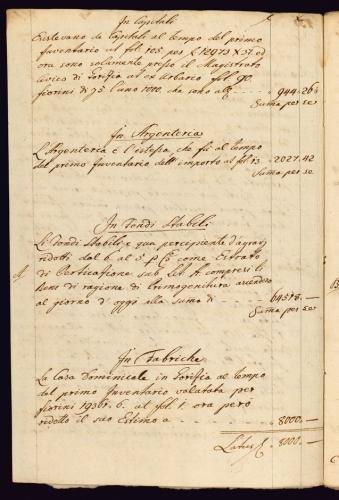 In Capitali
Esistevano de Capitali al tempo del primo
Inventario al fol. 105 per f 12973 X 37. ed
ora sono solamente presso il Magistrato
Civico di Gorizia al ex Urbario fol. 90.
fiorini di 75 l'uno 1010. che sono
944.26
Suma per se
In Argenteria
L'Argenteria è l'istessa, che fù al tempo
del primo Inventario dell'importo al fol. 13. 2027.42
Suma per se
In Fondi Stabili
Li Fondi Stabili, e qua percipiente d'agravj
ridotti dal 6. al 5 p Co come Estrato
di Perticazione sub Lit. A compresi li
Beni di ragione di Primogenitura ascendono
al giorno d'oggi alla suma di 64578.—
Suma per se
In Fabriche
La Casa Dominicale in Gorizia al tempo
del primo Inventario valutata per
fiorini 1936. 6. al fol. 1. ora però
ridotto il suo Estimo a 8000.—
Latus f. 8000.—